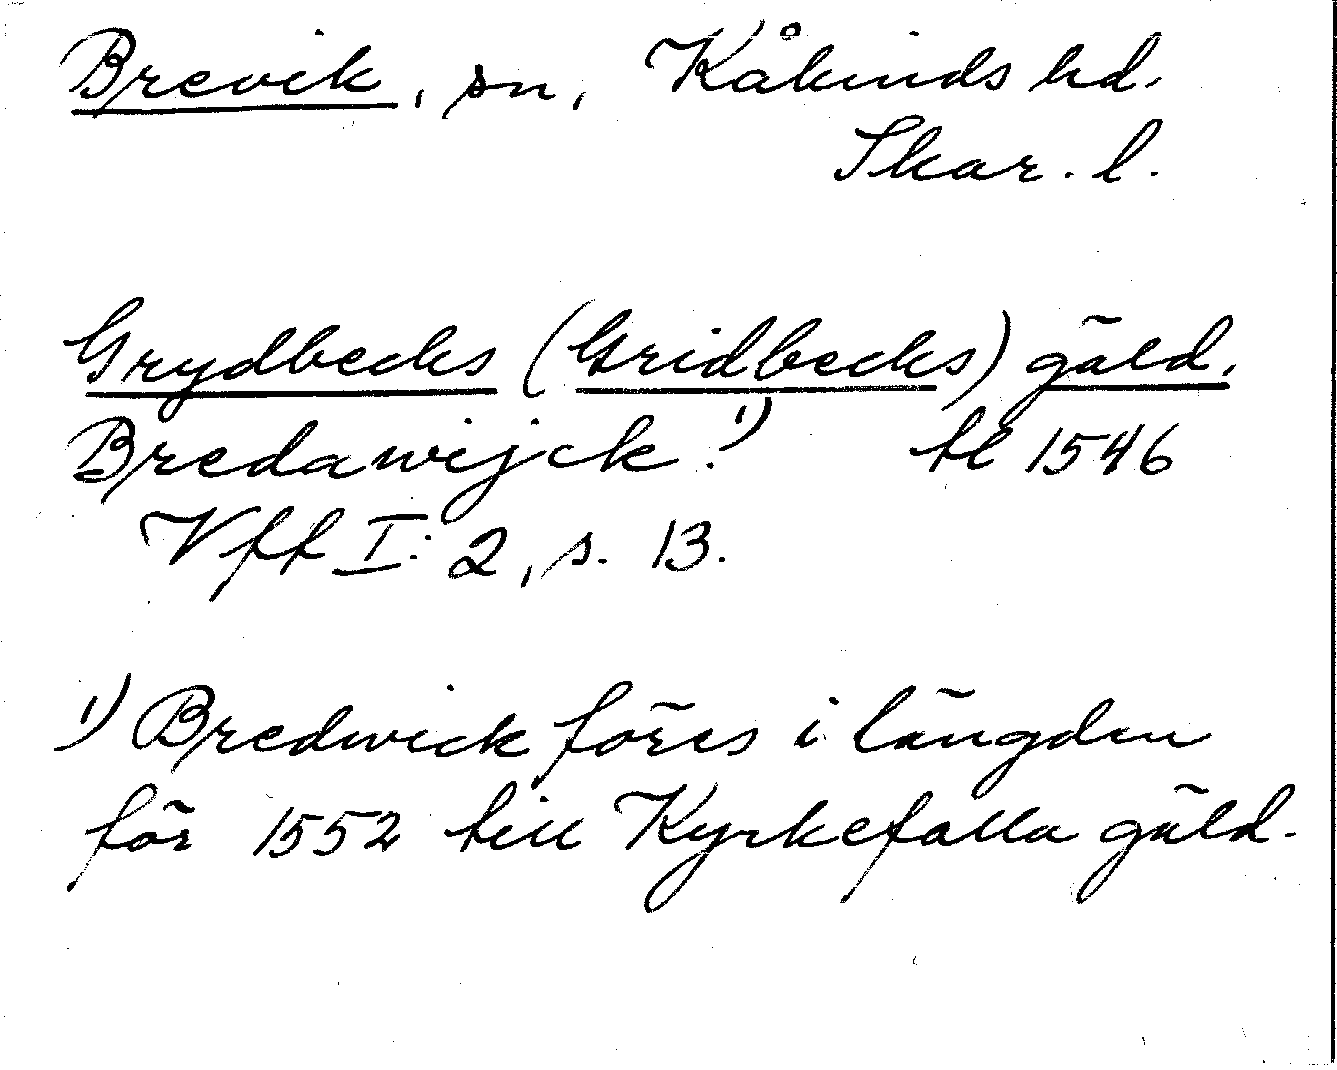 Brevik, sn, Kåkinds hd.
Skar. l.
Grydbecks (Gridbecks) gäld.
Bredawijck.¹) tl 1546
Vff I: 2, s. 13.
¹) Bredwick föres i längden
för 1552 till Kyrkefalla gäld.